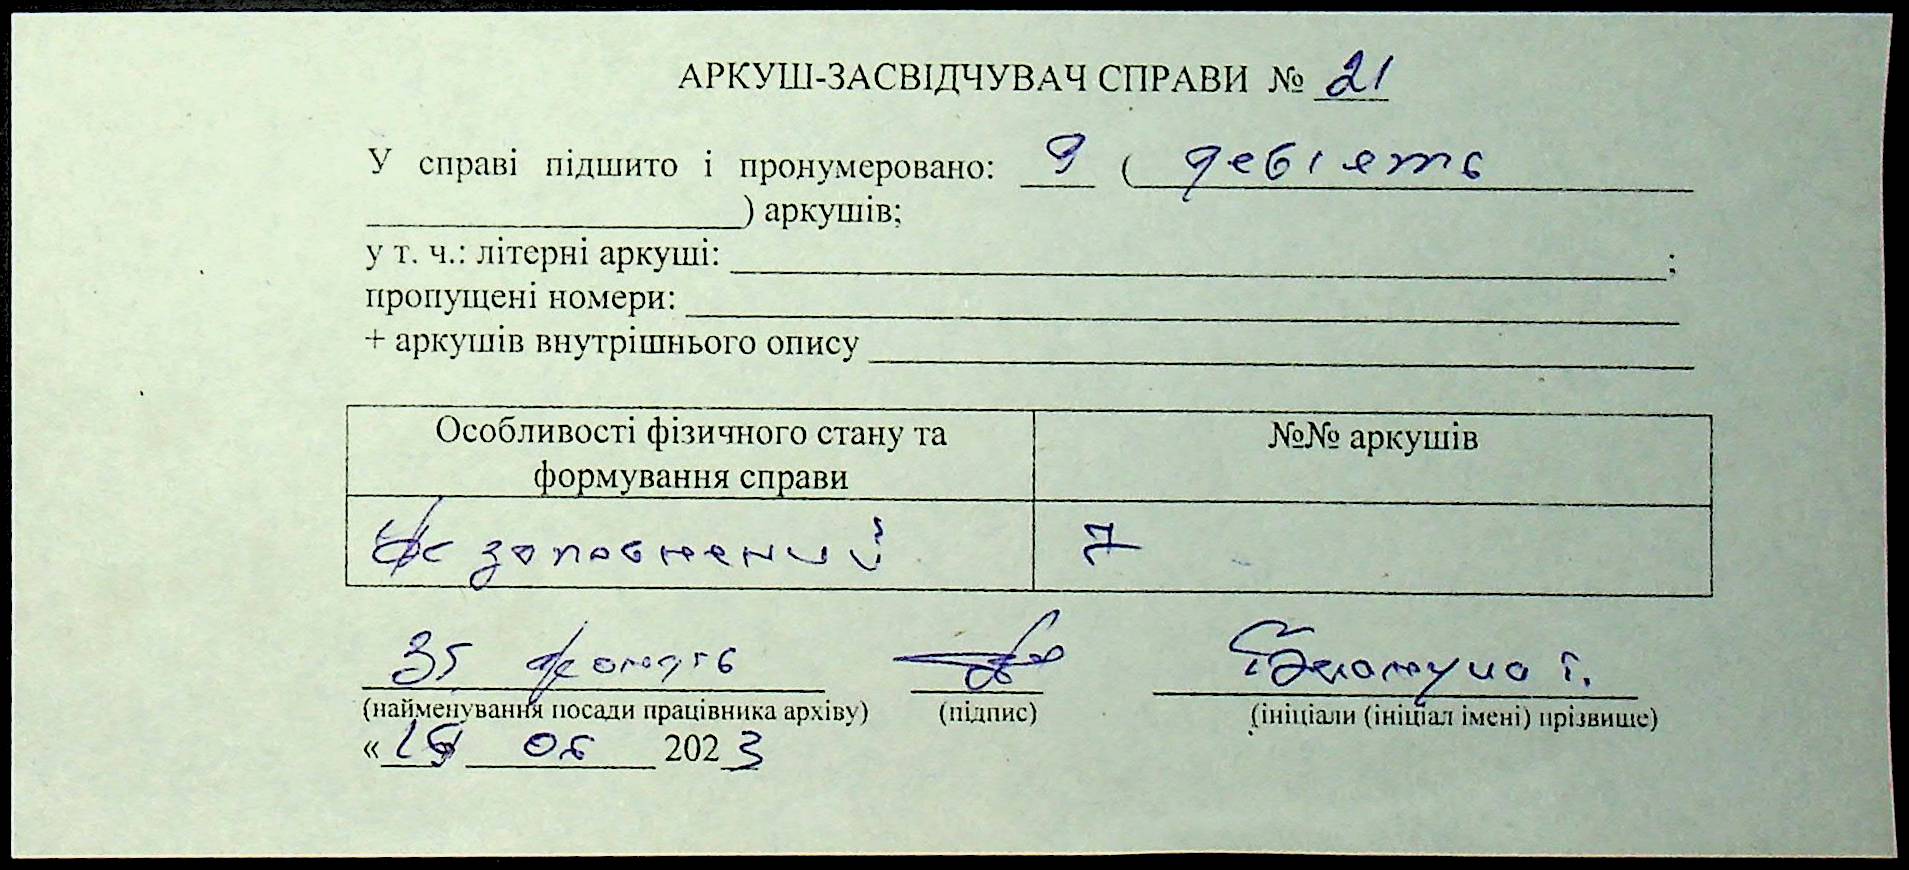 АРКУШ-ЗАСВІДЧУВАЧ СПРАВИ № 21
У справі підшито і пронумеровано: 9 ( девіять
) аркушів;
у т. ч.: літерні аркуші: ;
пропущені номери:
+ аркушів внутрішнього опису
Особливості фізичного стану та
формування справи
№№ аркушів
Не заповнений 7
(найменування посади працівника архіву) (підпис) (ініціали (ініціал імені) прізвище)
« 06 2023